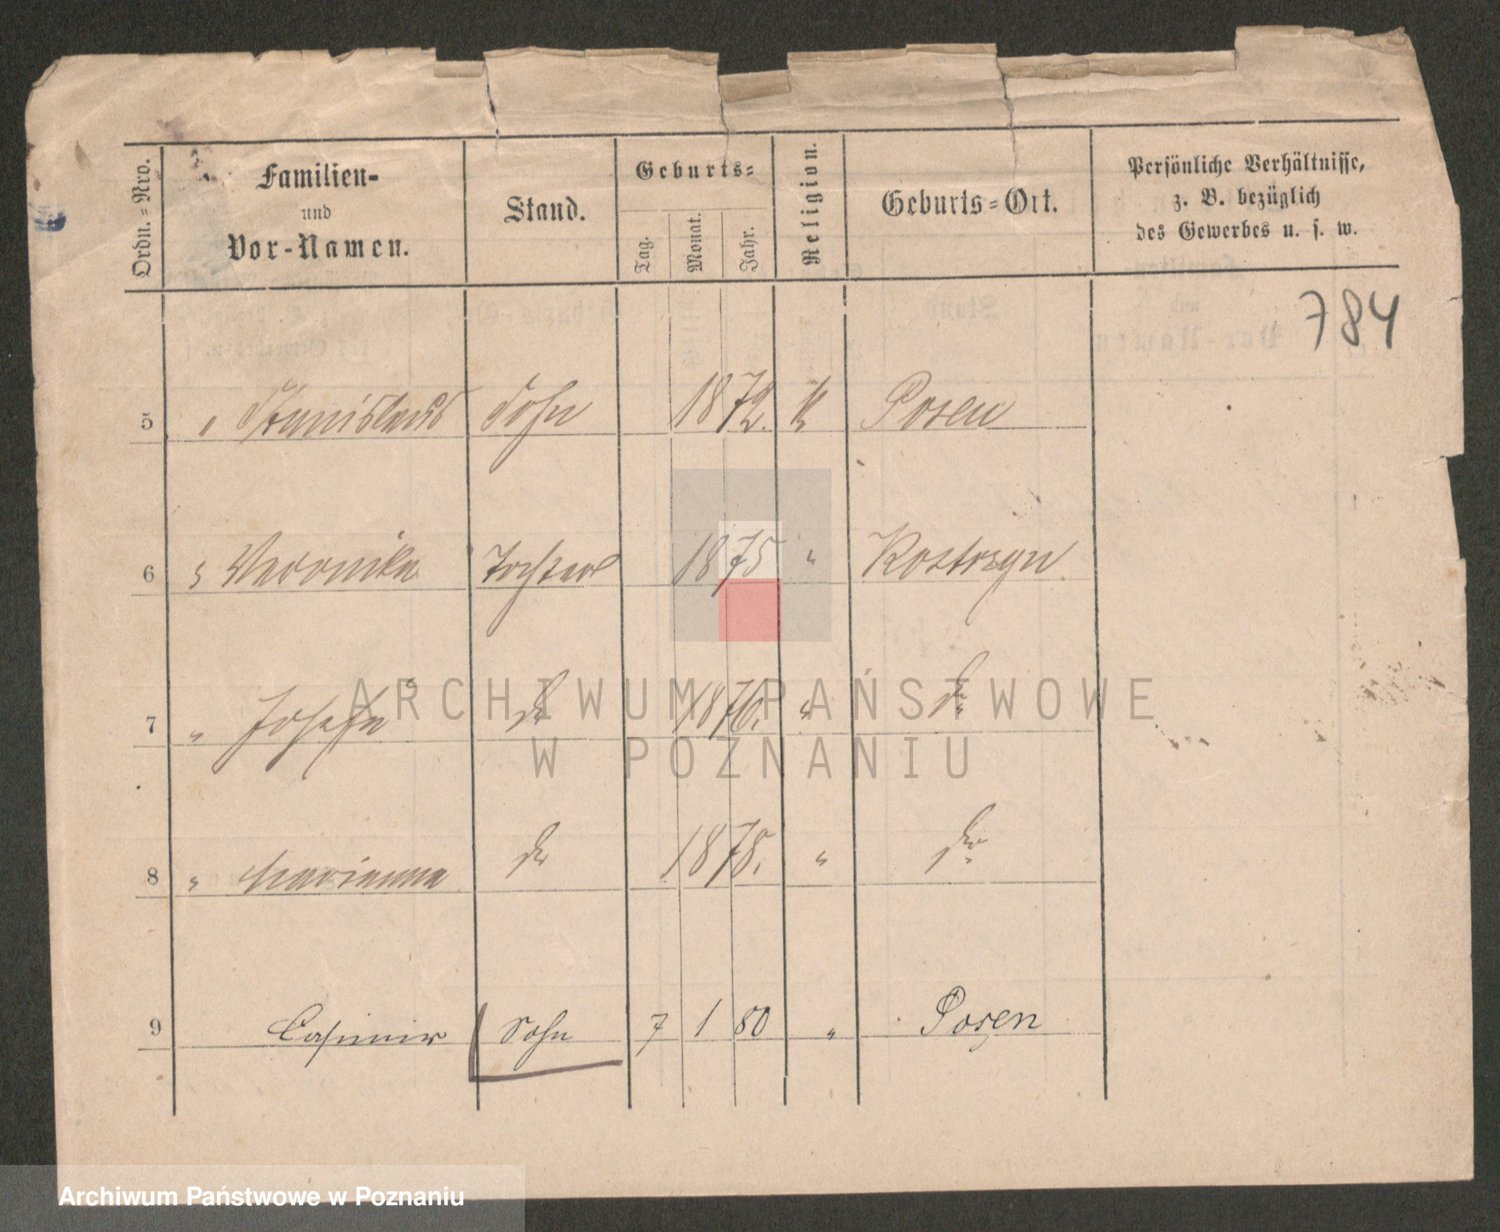 Ordn.=Nro.
Familien-
und
Vor-Namen.
Stand.
Geburts=
Tag.
Monat.
Jahr.
Religion.
Geburts=Ort.
Persönliche Verhältnisse,
z. B. bezüglich
des Gewerbes u. s. w.
784
5 " Stanislaus Sohn 1872. k Posen
6 " Veronika Tochter 1875 " Kostrzyn
7 " Josefa do 1876. " do
8 " Marianna do 1878. " do
9 Casimir Sohn 7 1 80 " Posen
ARCHIWUM PAŃSTWOWE
W POZNANIU
Archiwum Państwowe w Poznaniu